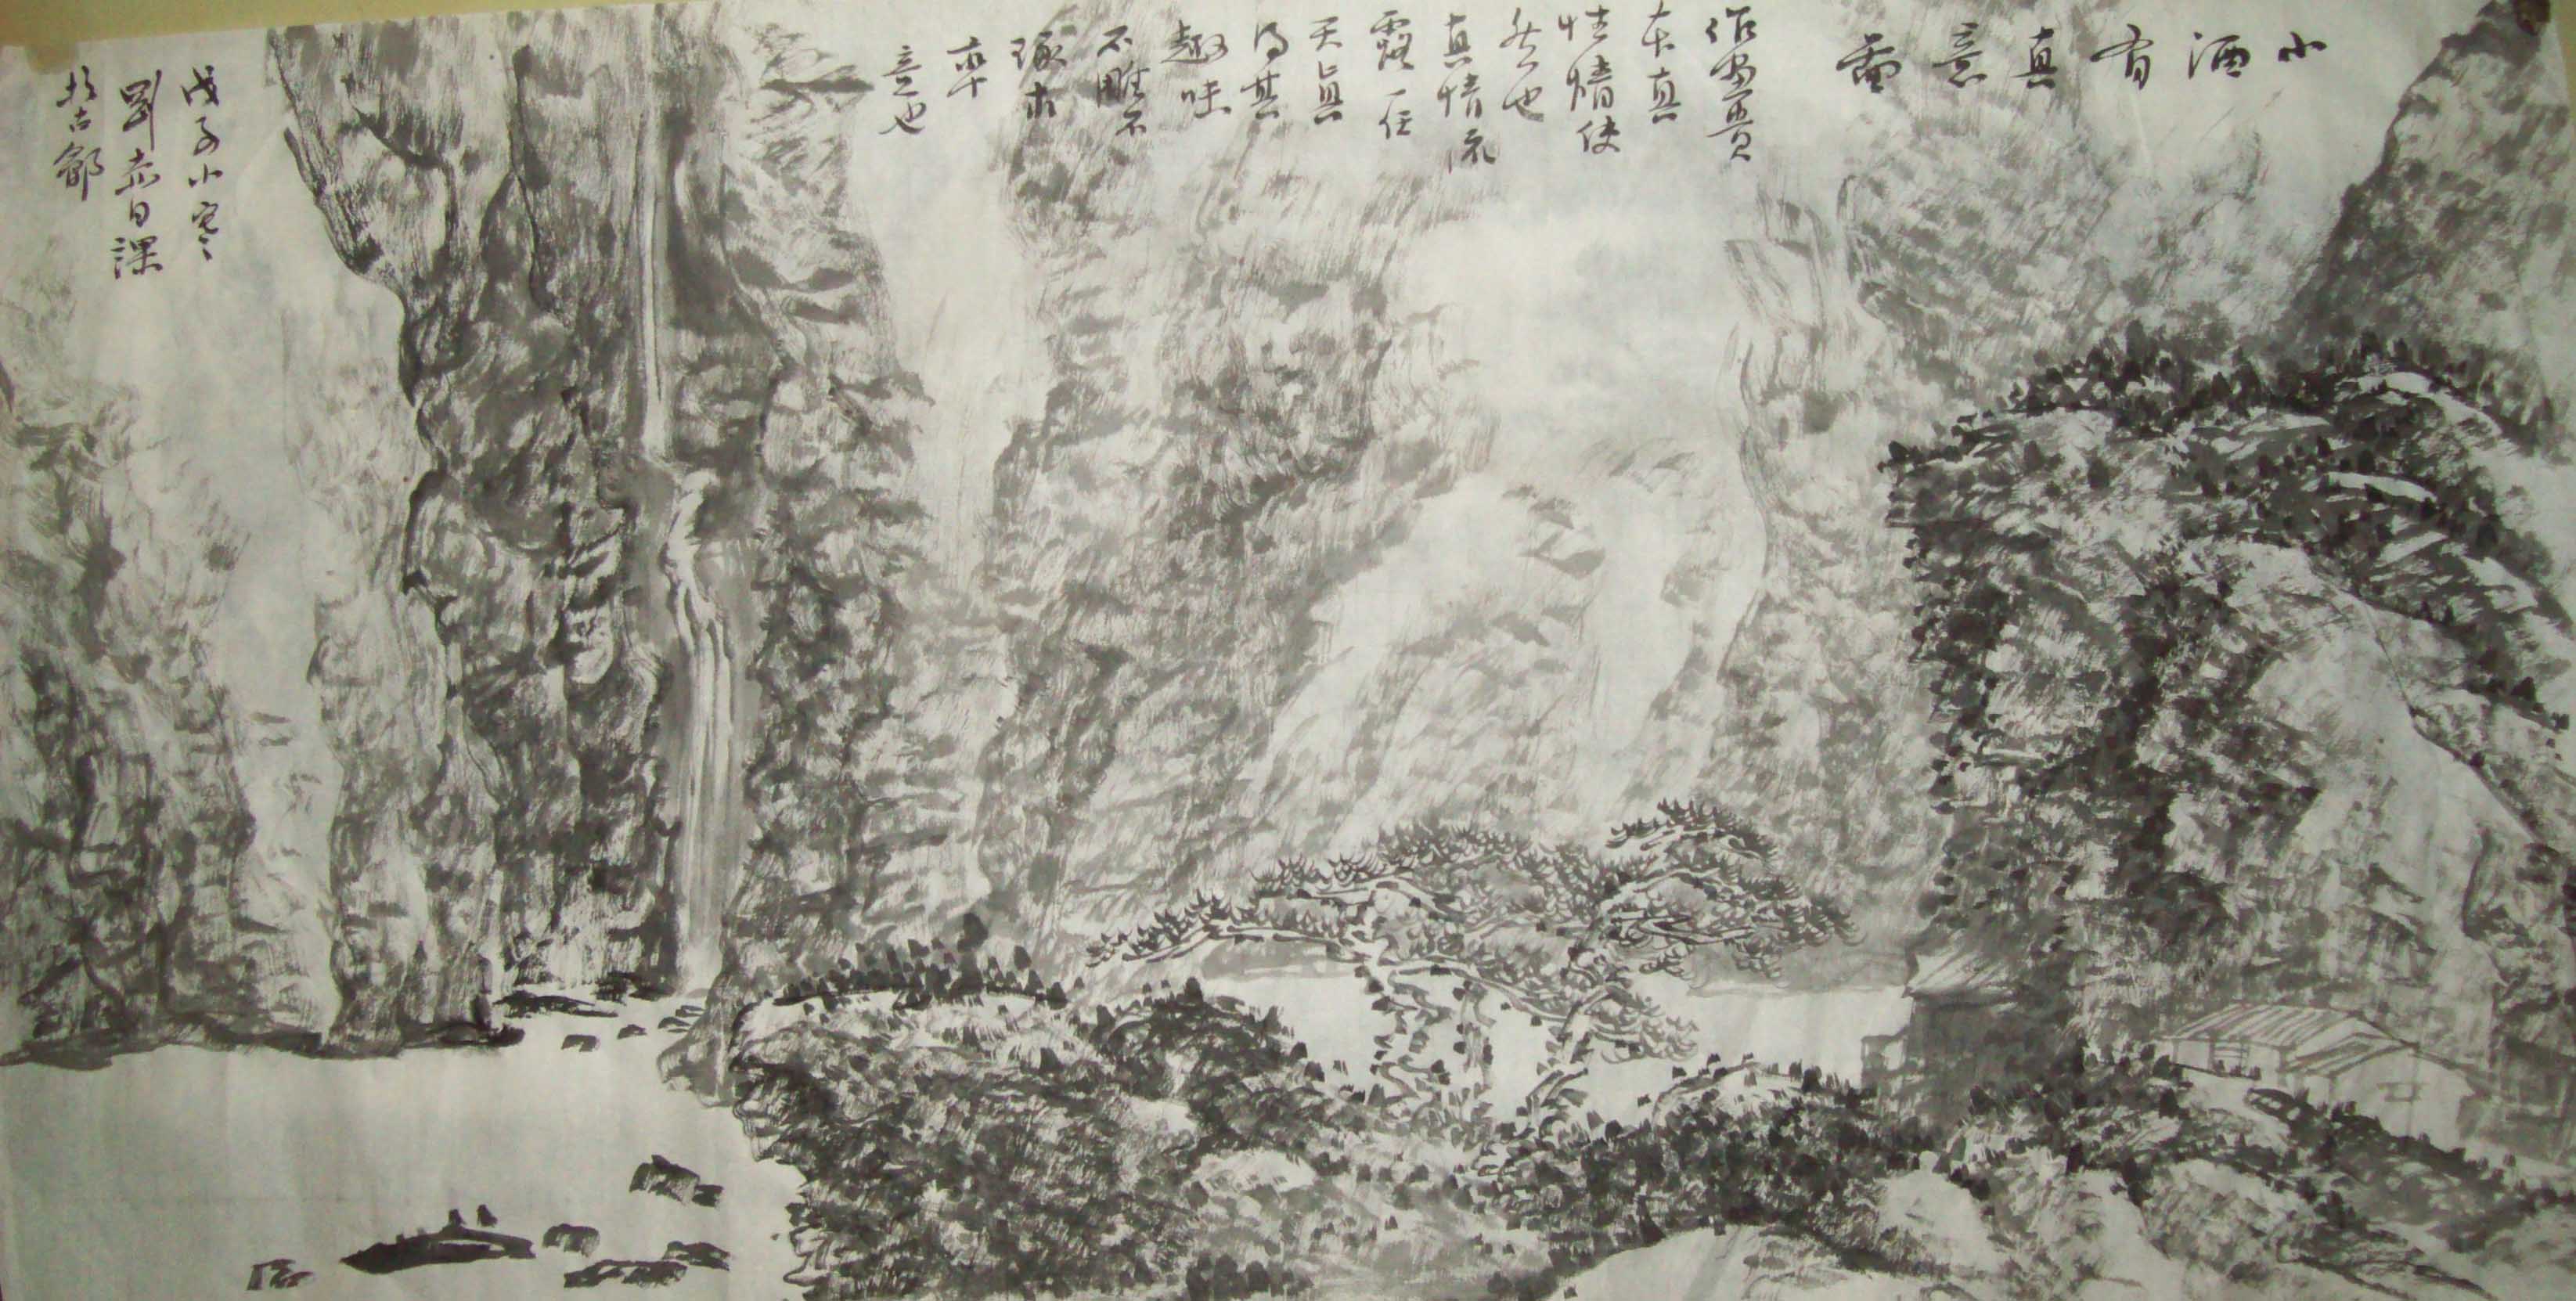 小酒有真意畫
作畫貴
本真
性情使
然也
真情流
露任
天真
得其
趣味
不雕不
琢亦
率
意也
戊子小寒
劉赤日課
於古